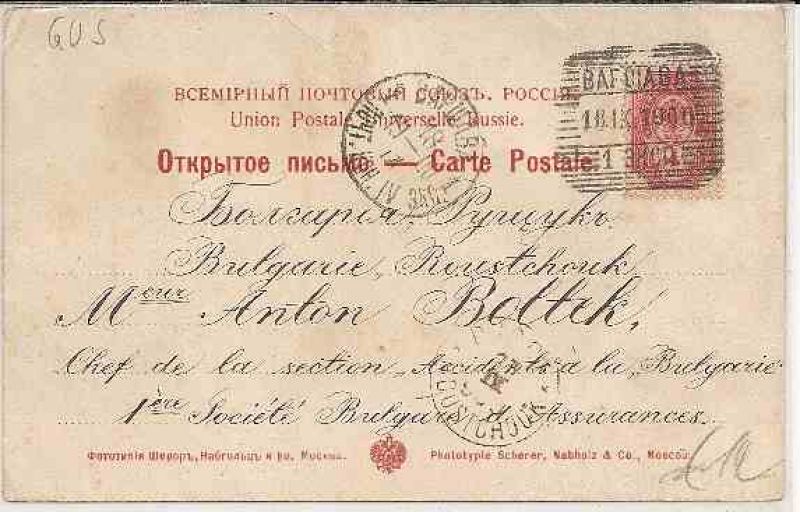 GUS
ВСЕМІРНЫЙ ПОЧТОВЫЙ СОЮЗЪ. РОССІЯ
Union Postale Universelle Russie.
Открытое письмо. — Carte Postale.
ВАРШАВА
18.IX.1900
1 ЭКСП.
Болгарія, Рущукъ.
Bulgarie, Roustchouk
Meur Anton Boltek,
Chef de la section „Accidents" à la „Bulgarie"
1ère Société Bulgare d'Assurances.
IX
Фототипія Шереръ, Набгольцъ и Ко. Москва.
Phototypie Scherer, Nabholz & Co., Moscou.